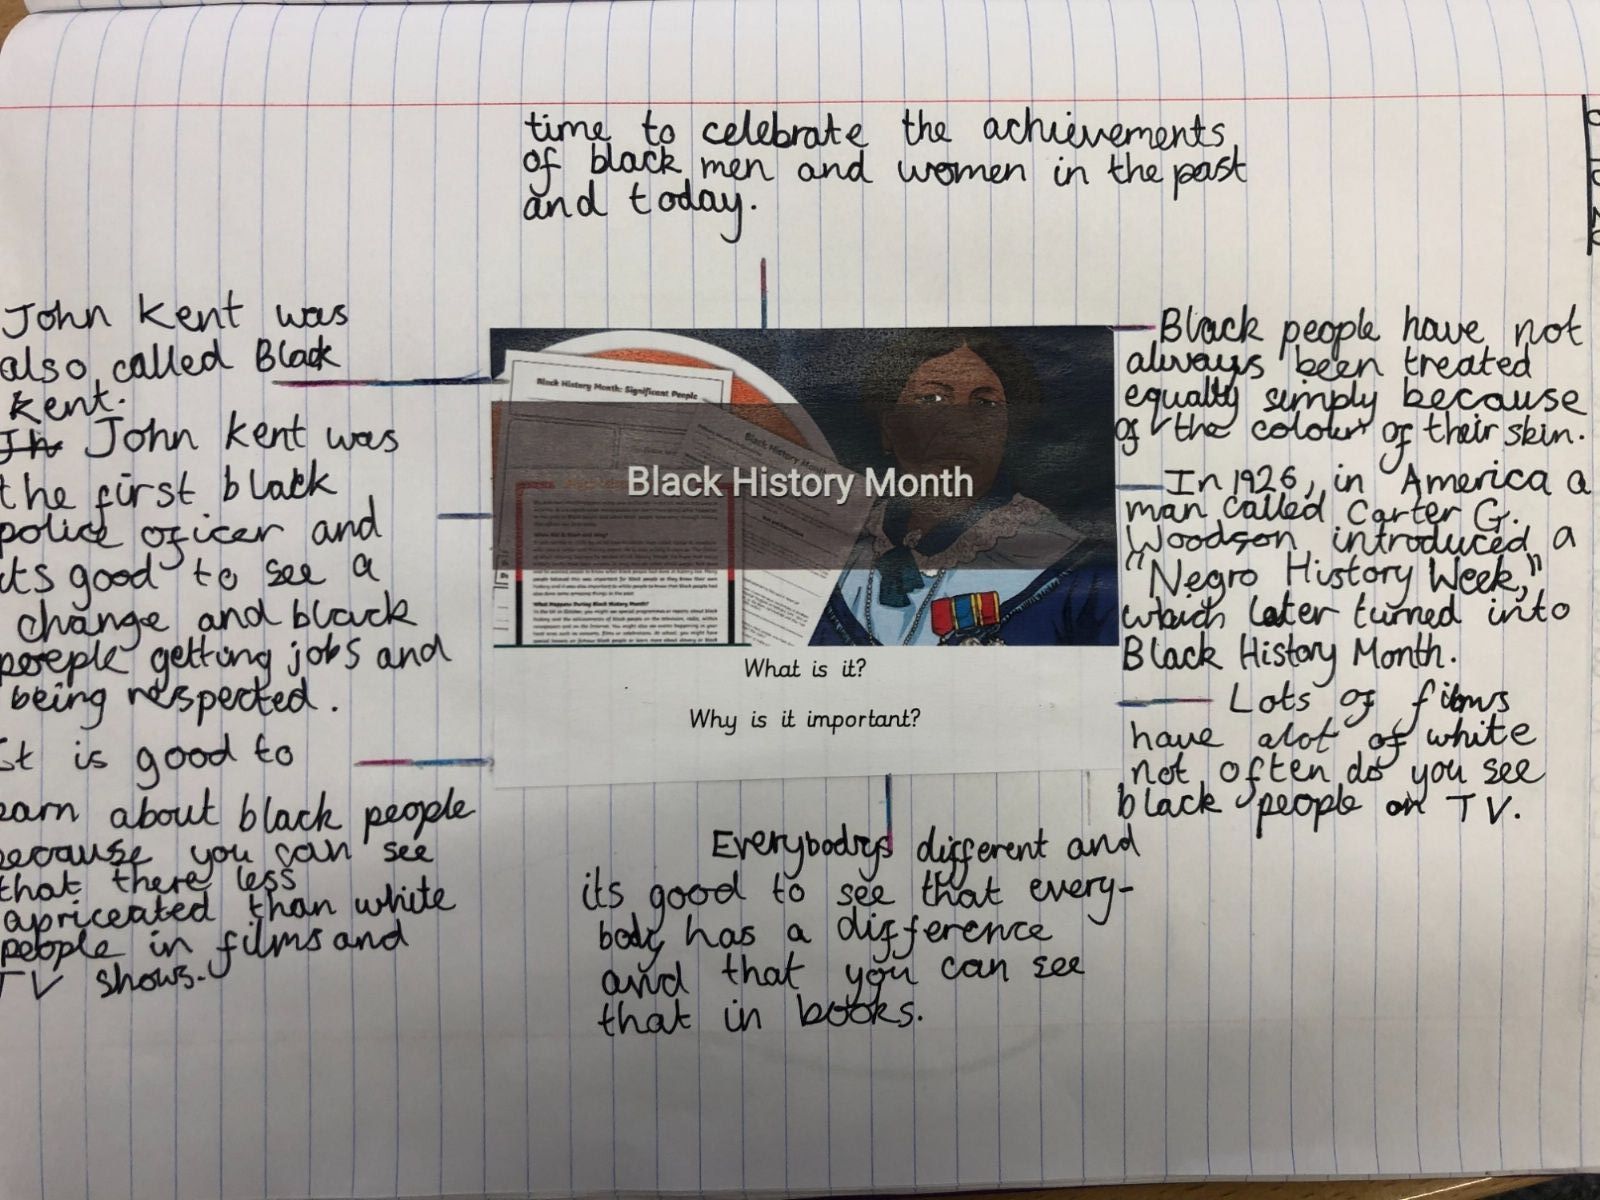 time to celebrate the achievements
of black men and women in the past
and today.
John Kent was
also called Black
Kent.
In John Kent was
the first black
police officer and
its good to see a
change and black
people getting jobs and
being respected.
It is good to
earn about black people
because you can see
that there less
apriceated than white
people in films and
TV shows.
Black History Month: Significant People
Black History Month
Black History Month
What Happens During Black History Month?
What is it?
Why is it important?
Black people have not
always been treated
equally simply because
of the colour of their skin.
In 1926, in America a
man called Carter G.
Woodson introduced a
"Negro History Week,"
which later turned into
Black History Month.
Lots of films
have alot of white
not often do you see
black people on TV.
Everybodys different and
its good to see that every-
body has a difference
and that you can see
that in books.